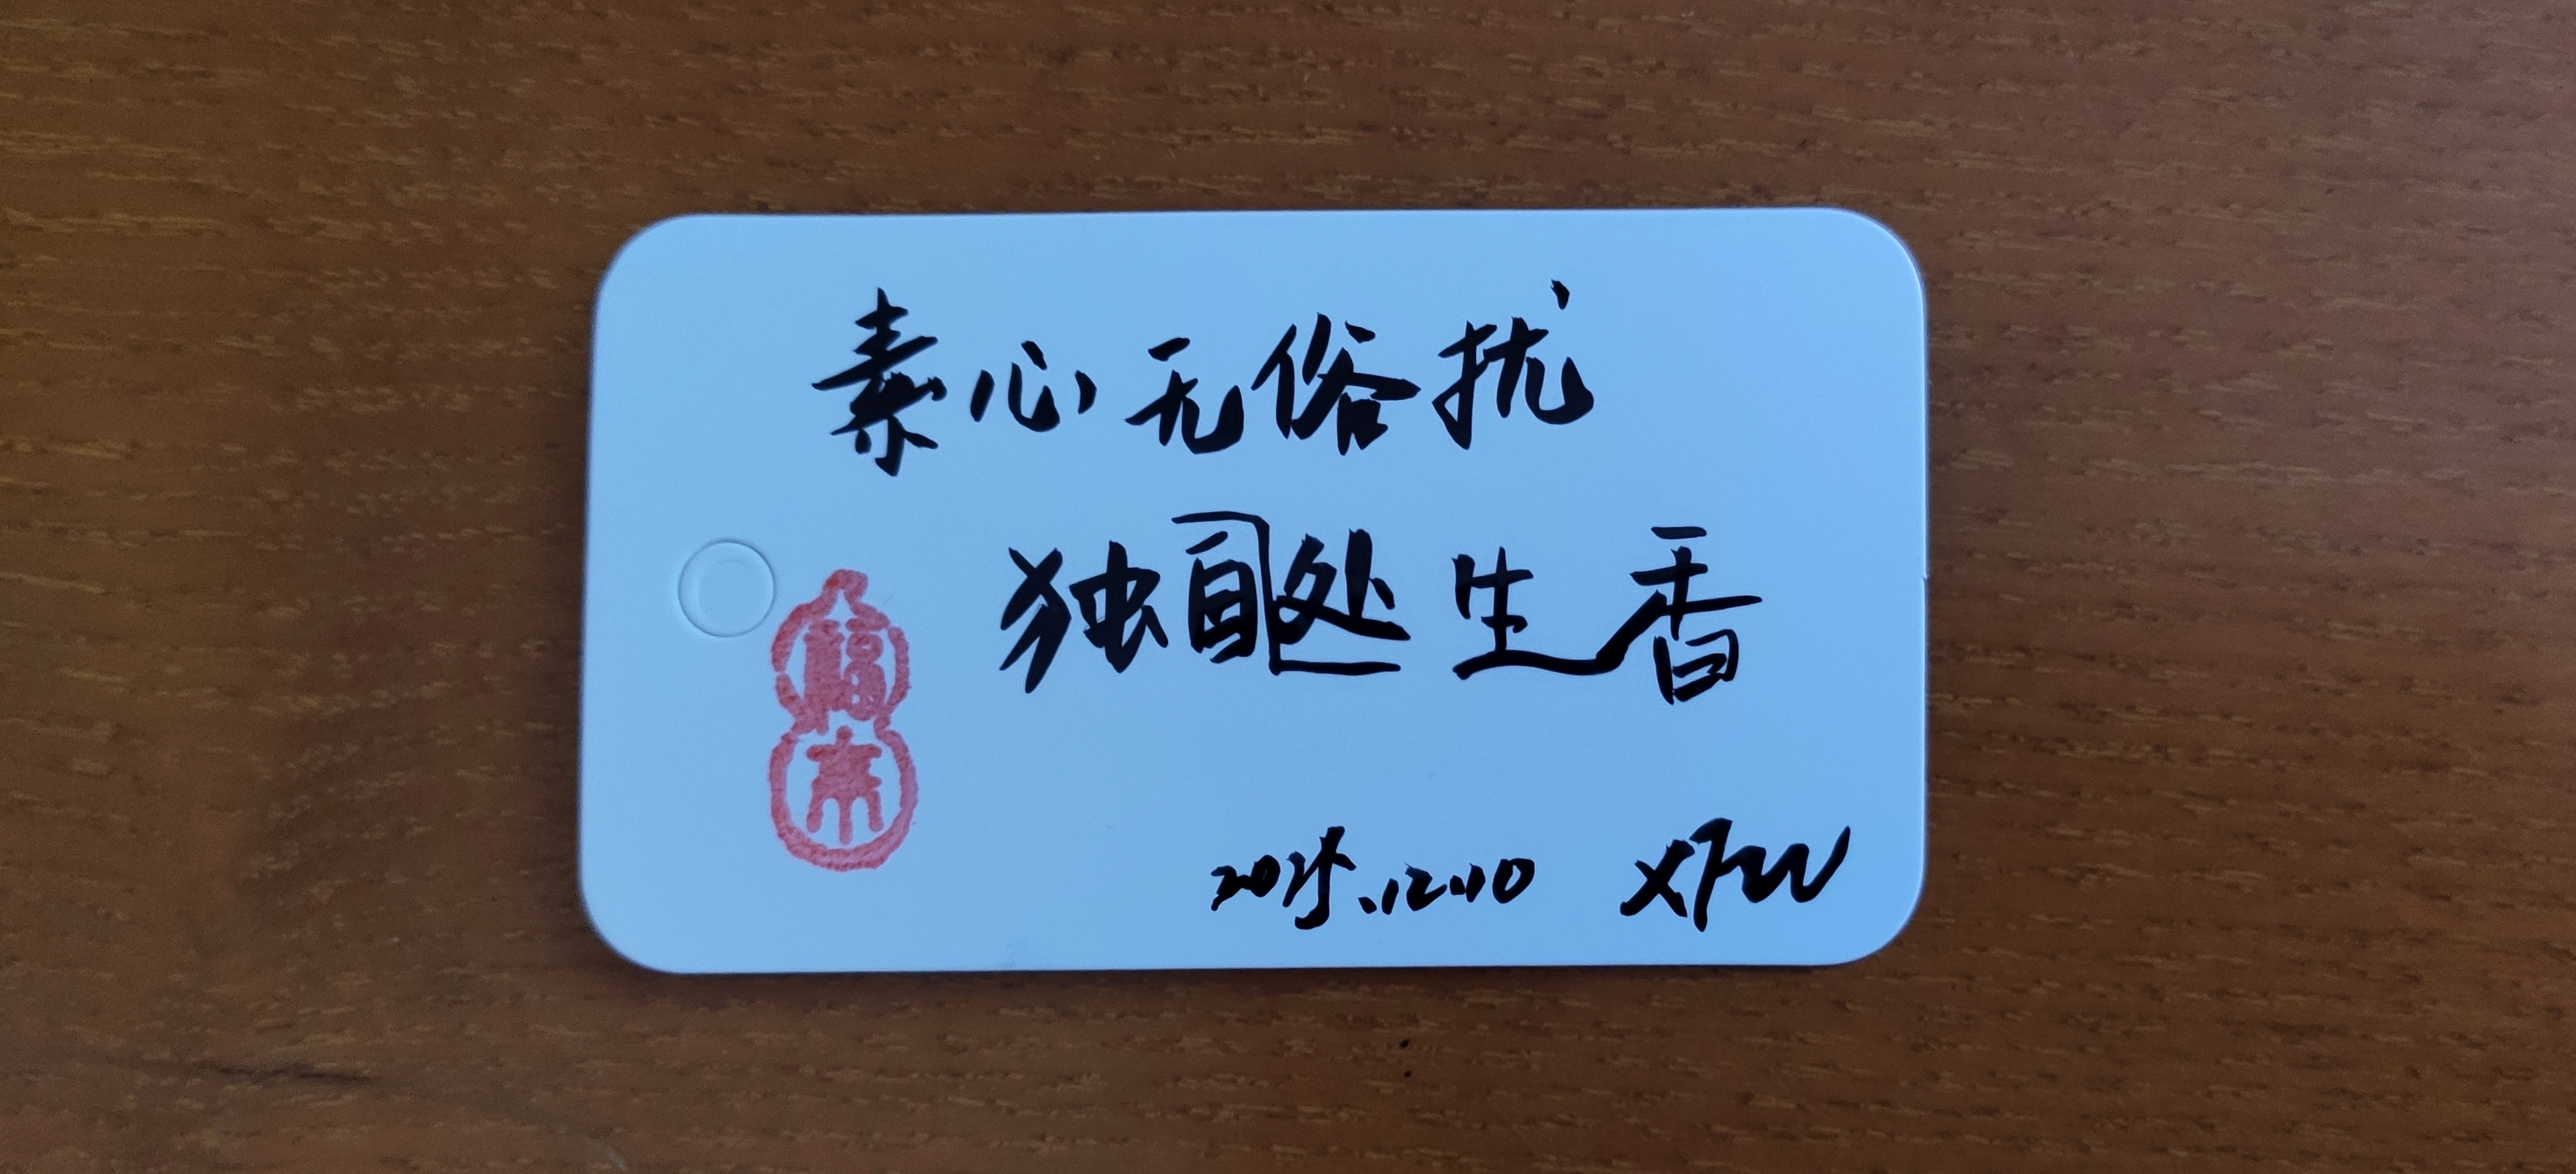 素心无俗扰
独自处生香
福
2025.12.10 XFW